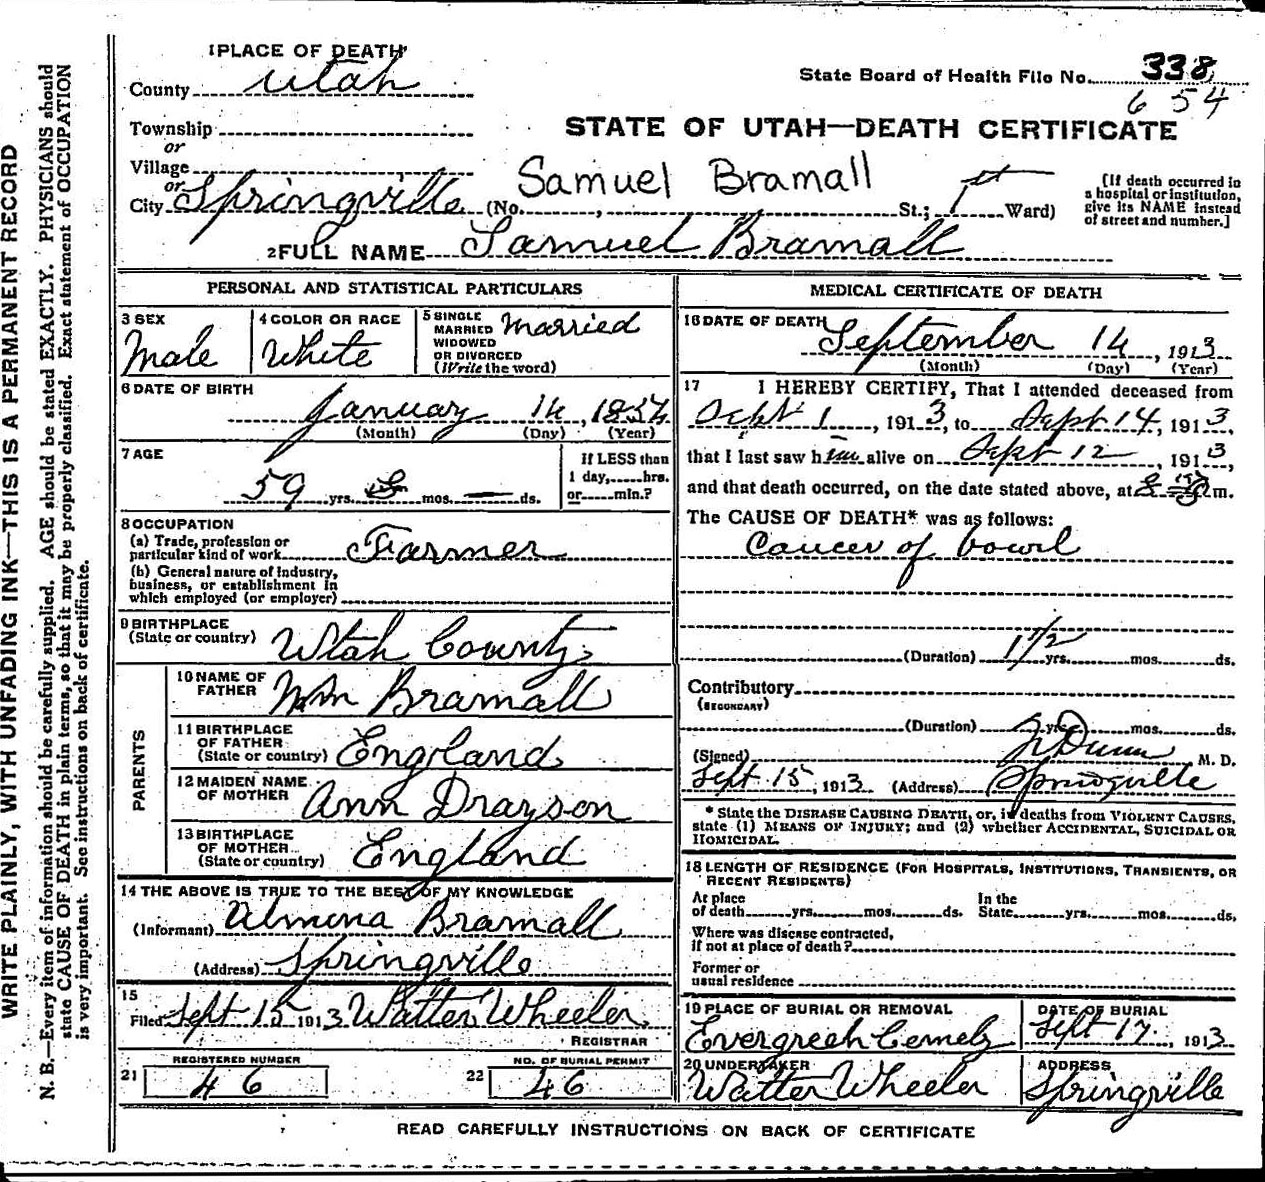 WRITE PLAINLY, WITH UNFADING INK—THIS IS A PERMANENT RECORD
N. B.—Every item of information should be carefully supplied. AGE should be stated EXACTLY. PHYSICIANS should
state CAUSE OF DEATH in plain terms, so that it may be properly classified. Exact statement of OCCUPATION
is very important. See instructions on back of certificate.
1 PLACE OF DEATH
County Utah
State Board of Health File No. 338
654
Township
or
STATE OF UTAH—DEATH CERTIFICATE
Village
or
Samuel Bramall
City Springville (No. , St.; 1st Ward)
[If death occurred in
a hospital or institution,
give its NAME instead
of street and number.]
2 FULL NAME Samuel Bramall
PERSONAL AND STATISTICAL PARTICULARS
3 SEX
Male
4 COLOR OR RACE
White
5 SINGLE
MARRIED
WIDOWED
OR DIVORCED
(Write the word)
Married
6 DATE OF BIRTH
January 14, 1854
(Month) (Day) (Year)
7 AGE
59 yrs. 8 mos. — ds.
If LESS than
1 day, hrs.
or min.?
8 OCCUPATION
(a) Trade, profession or
particular kind of work Farmer
(b) General nature of industry,
business, or establishment in
which employed (or employer)
9 BIRTHPLACE
(State or country) Utah County
PARENTS
10 NAME OF
FATHER Wm Bramall
11 BIRTHPLACE
OF FATHER
(State or country) England
12 MAIDEN NAME
OF MOTHER Ann Drayson
13 BIRTHPLACE
OF MOTHER
(State or country) England
14 THE ABOVE IS TRUE TO THE BEST OF MY KNOWLEDGE
(Informant) Almina Bramall
(Address) Springville
15
Filed Sept 15 1913 Walter Wheeler
REGISTRAR
REGISTERED NUMBER
21 46
NO. OF BURIAL PERMIT
22 46
MEDICAL CERTIFICATE OF DEATH
16 DATE OF DEATH
September 14, 1913
(Month) (Day) (Year)
17 I HEREBY CERTIFY, That I attended deceased from
Sept 1, 1913, to Sept 14, 1913,
that I last saw him alive on Sept 12, 1913,
and that death occurred, on the date stated above, at 8 m.
The CAUSE OF DEATH* was as follows:
Cancer of bowel
(Duration) 1 1/2 yrs. mos. ds.
Contributory
(SECONDARY)
(Duration) yrs. mos. ds.
(Signed) Dunn M. D.
Sept 15, 1913 (Address) Springville
* State the DISEASE CAUSING DEATH, or, in deaths from VIOLENT CAUSES,
state (1) MEANS OF INJURY; and (2) whether ACCIDENTAL, SUICIDAL OR
HOMICIDAL.
18 LENGTH OF RESIDENCE (FOR HOSPITALS, INSTITUTIONS, TRANSIENTS, OR
RECENT RESIDENTS)
At place
of death yrs. mos. ds.
In the
State yrs. mos. ds.
Where was disease contracted,
if not at place of death?
Former or
usual residence
19 PLACE OF BURIAL OR REMOVAL
Evergreen Cemety
DATE OF BURIAL
Sept 17, 1913
20 UNDERTAKER
Walter Wheeler
ADDRESS
Springville
READ CAREFULLY INSTRUCTIONS ON BACK OF CERTIFICATE